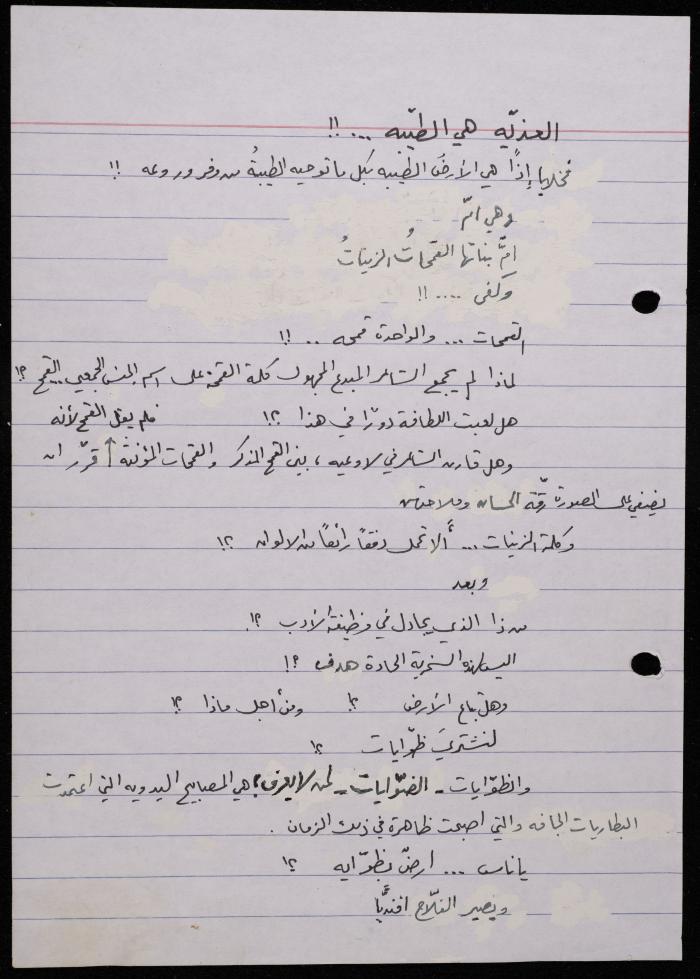 العذيّه هي الطيّبه ... !!
إذاً هي الأرضُ الطيّبه بكل ما توحيه الطيبةُ من وفر وروعه !!
وهي امّ
امّ بناتها القمحاتُ الزيناتُ
وكفى .... !!
القمحات ... والواحدة قمحه .. !!
لماذا لم يجمع الشاعر المبدع المجهول كلمة القمحة على اسم الجنس الجمعي .. القمح ؟!
هل لعبت اللطافة دورًا في هذا ؟! فلم يقل القمح لأنه
وهل قارن الشاعر في لاوعيه ، بين القمح المذكر والقمحات المؤنثة قرّر ان
يضفي على الصورة رقّة الحسان وملاحتهن
وكلمة الزينات ... ألا تحمل دفقاً رائعاً من الالوان ؟!
وبعد
من ذا الذي يجادل في وظيفة الأدب ؟!
اليس لهذه السخرية الحادة هدف ؟!
وهل تباع الأرض ؟! ومن أجل ماذا ؟!
لنشتريَ ظوّايات ؟!
والظوّايات - الضوّايات - لمن لا يعرف ، هي المصابيح اليدويه التي اعتمدت
البطاريات الجافه والتي اصبحت ظاهرة في ذلك الزمان .
يا ناس ... ارضٌ بظوّايه ؟!
ويصير الفلّاح افنديًّا